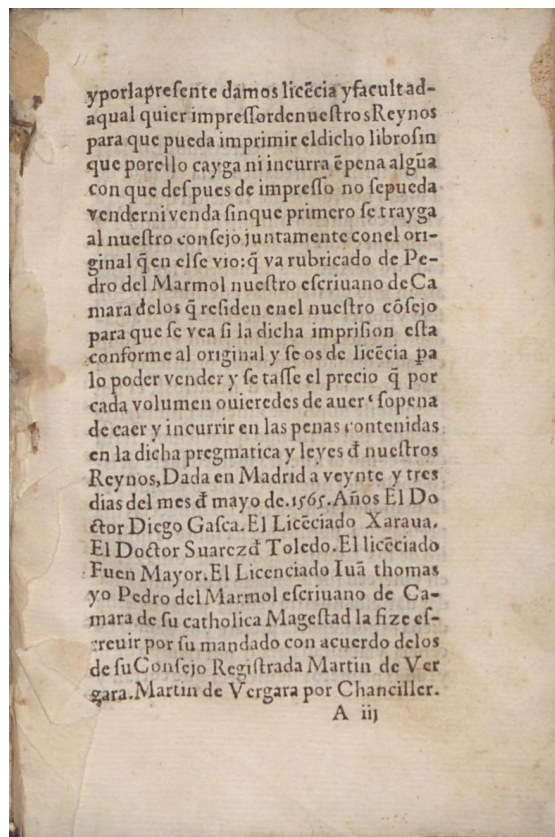 yporlapreſente damos licẽcia yfacultad-
aqual quier impreſſordenueſtrosReynos
para que pueda imprimir eldicho libroſin
que porello cayga ni incurra ẽpena algũa
con que deſpues de impreſſo no ſepueda
venderni venda ſinque primero ſe trayga
al nueſtro conſejo juntamente conel ori-
ginal q̃ en elſe vio:q̃ va rubricado de Pe-
dro del Marmol nueſtro eſcriuano deCa
mara delos q̃ reſiden enel nueſtro cõſejo
para que ſe vea ſi la dicha impriſion eſta
conforme al original y ſe os de licẽcia ꝑa
lo poder vender y ſe taſſe el precio q̃ por
cada volumen ouieredes de auer ſopena
de caer y incurrir en las penas contenidas
en la dicha pregmatica y leyes đ nueſtros
Reynos,Dada en Madrid a veynte y tres
dias del mes đ mayo de.1565.Años El Do
ctor Diego Gaſca.El Licẽciado Xaraua.
El Doctor Suarezđ Toledo.El licẽciado
Fuen Mayor.El Licenciado Iuã thomas
yo Pedro del Marmol eſcriuano de Ca-
mara de ſu catholica Mageſtad la fize eſ-
creuir por ſu mandado con acuerdo delos
de ſuConſejo Regiſtrada Martin de Ver
gara.Martin de Vergara por Chanciller.
A iij